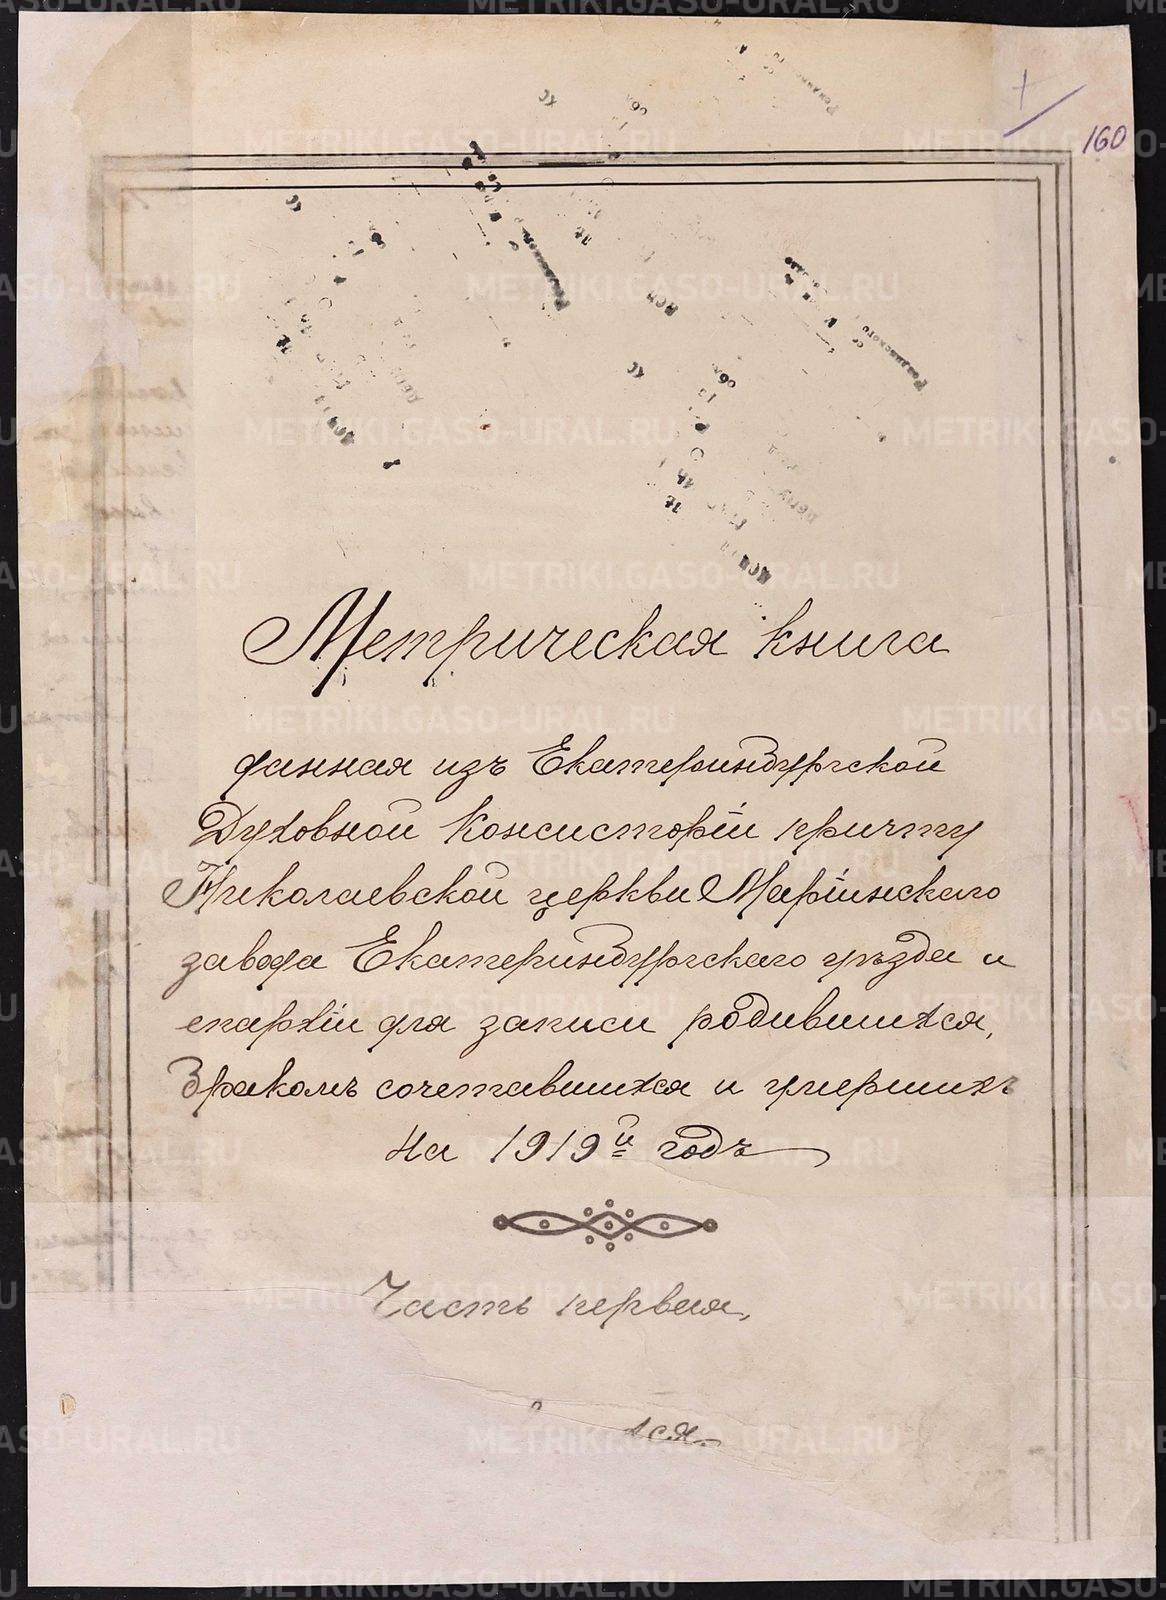 160
Метрическая книга
данная изъ Екатеринбургской
Духовной Консисторіи причту
Николаевской церкви Маріинскаго
завода Екатеринбургскаго уѣзда и
епархіи для записи родившихся,
бракомъ сочетавшихся и умершихъ
на 1919й годъ
Часть первая,
хся.
METRIKI.GASO-URAL.RU